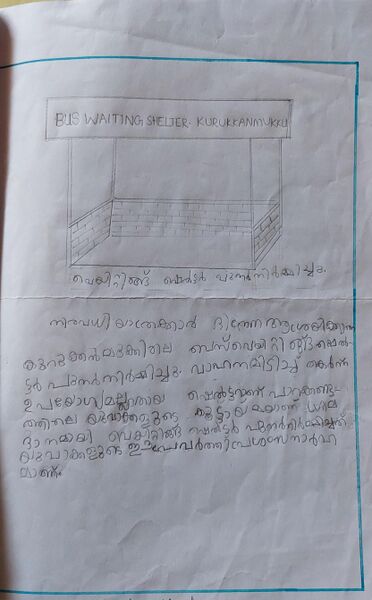 BUS WAITING SHELTER: KURUKKANMUKKU
വെയിറ്റിങ്ങ് ഷെൽട്ടർ പുനർനിർമ്മിച്ചു.
നിരവധി യാത്രക്കാർ ദിനേന ആശ്രയിക്കുന്ന
കുറുക്കൻമുക്കിലെ ബസ് വെയിറ്റിങ്ങ് ഷെൽ-
ട്ടർ പുനർനിർമ്മിച്ചു. വാഹനമിടിച്ച് തകർന്ന്
ഉപയോഗശൂന്യമായ ഷെൽട്ടറാണ്
ത്തിലെ യുവാക്കളുടെ കൂട്ടായ്മയാണ്
ദാനമായി വെയിറ്റിങ്ങ് ഷെൽട്ടർ പുനർനിർമ്മിച്ചത്.
യുവാക്കളുടെ ഈ പ്രവർത്തി പ്രശംസനാർഹ
മാണ്.